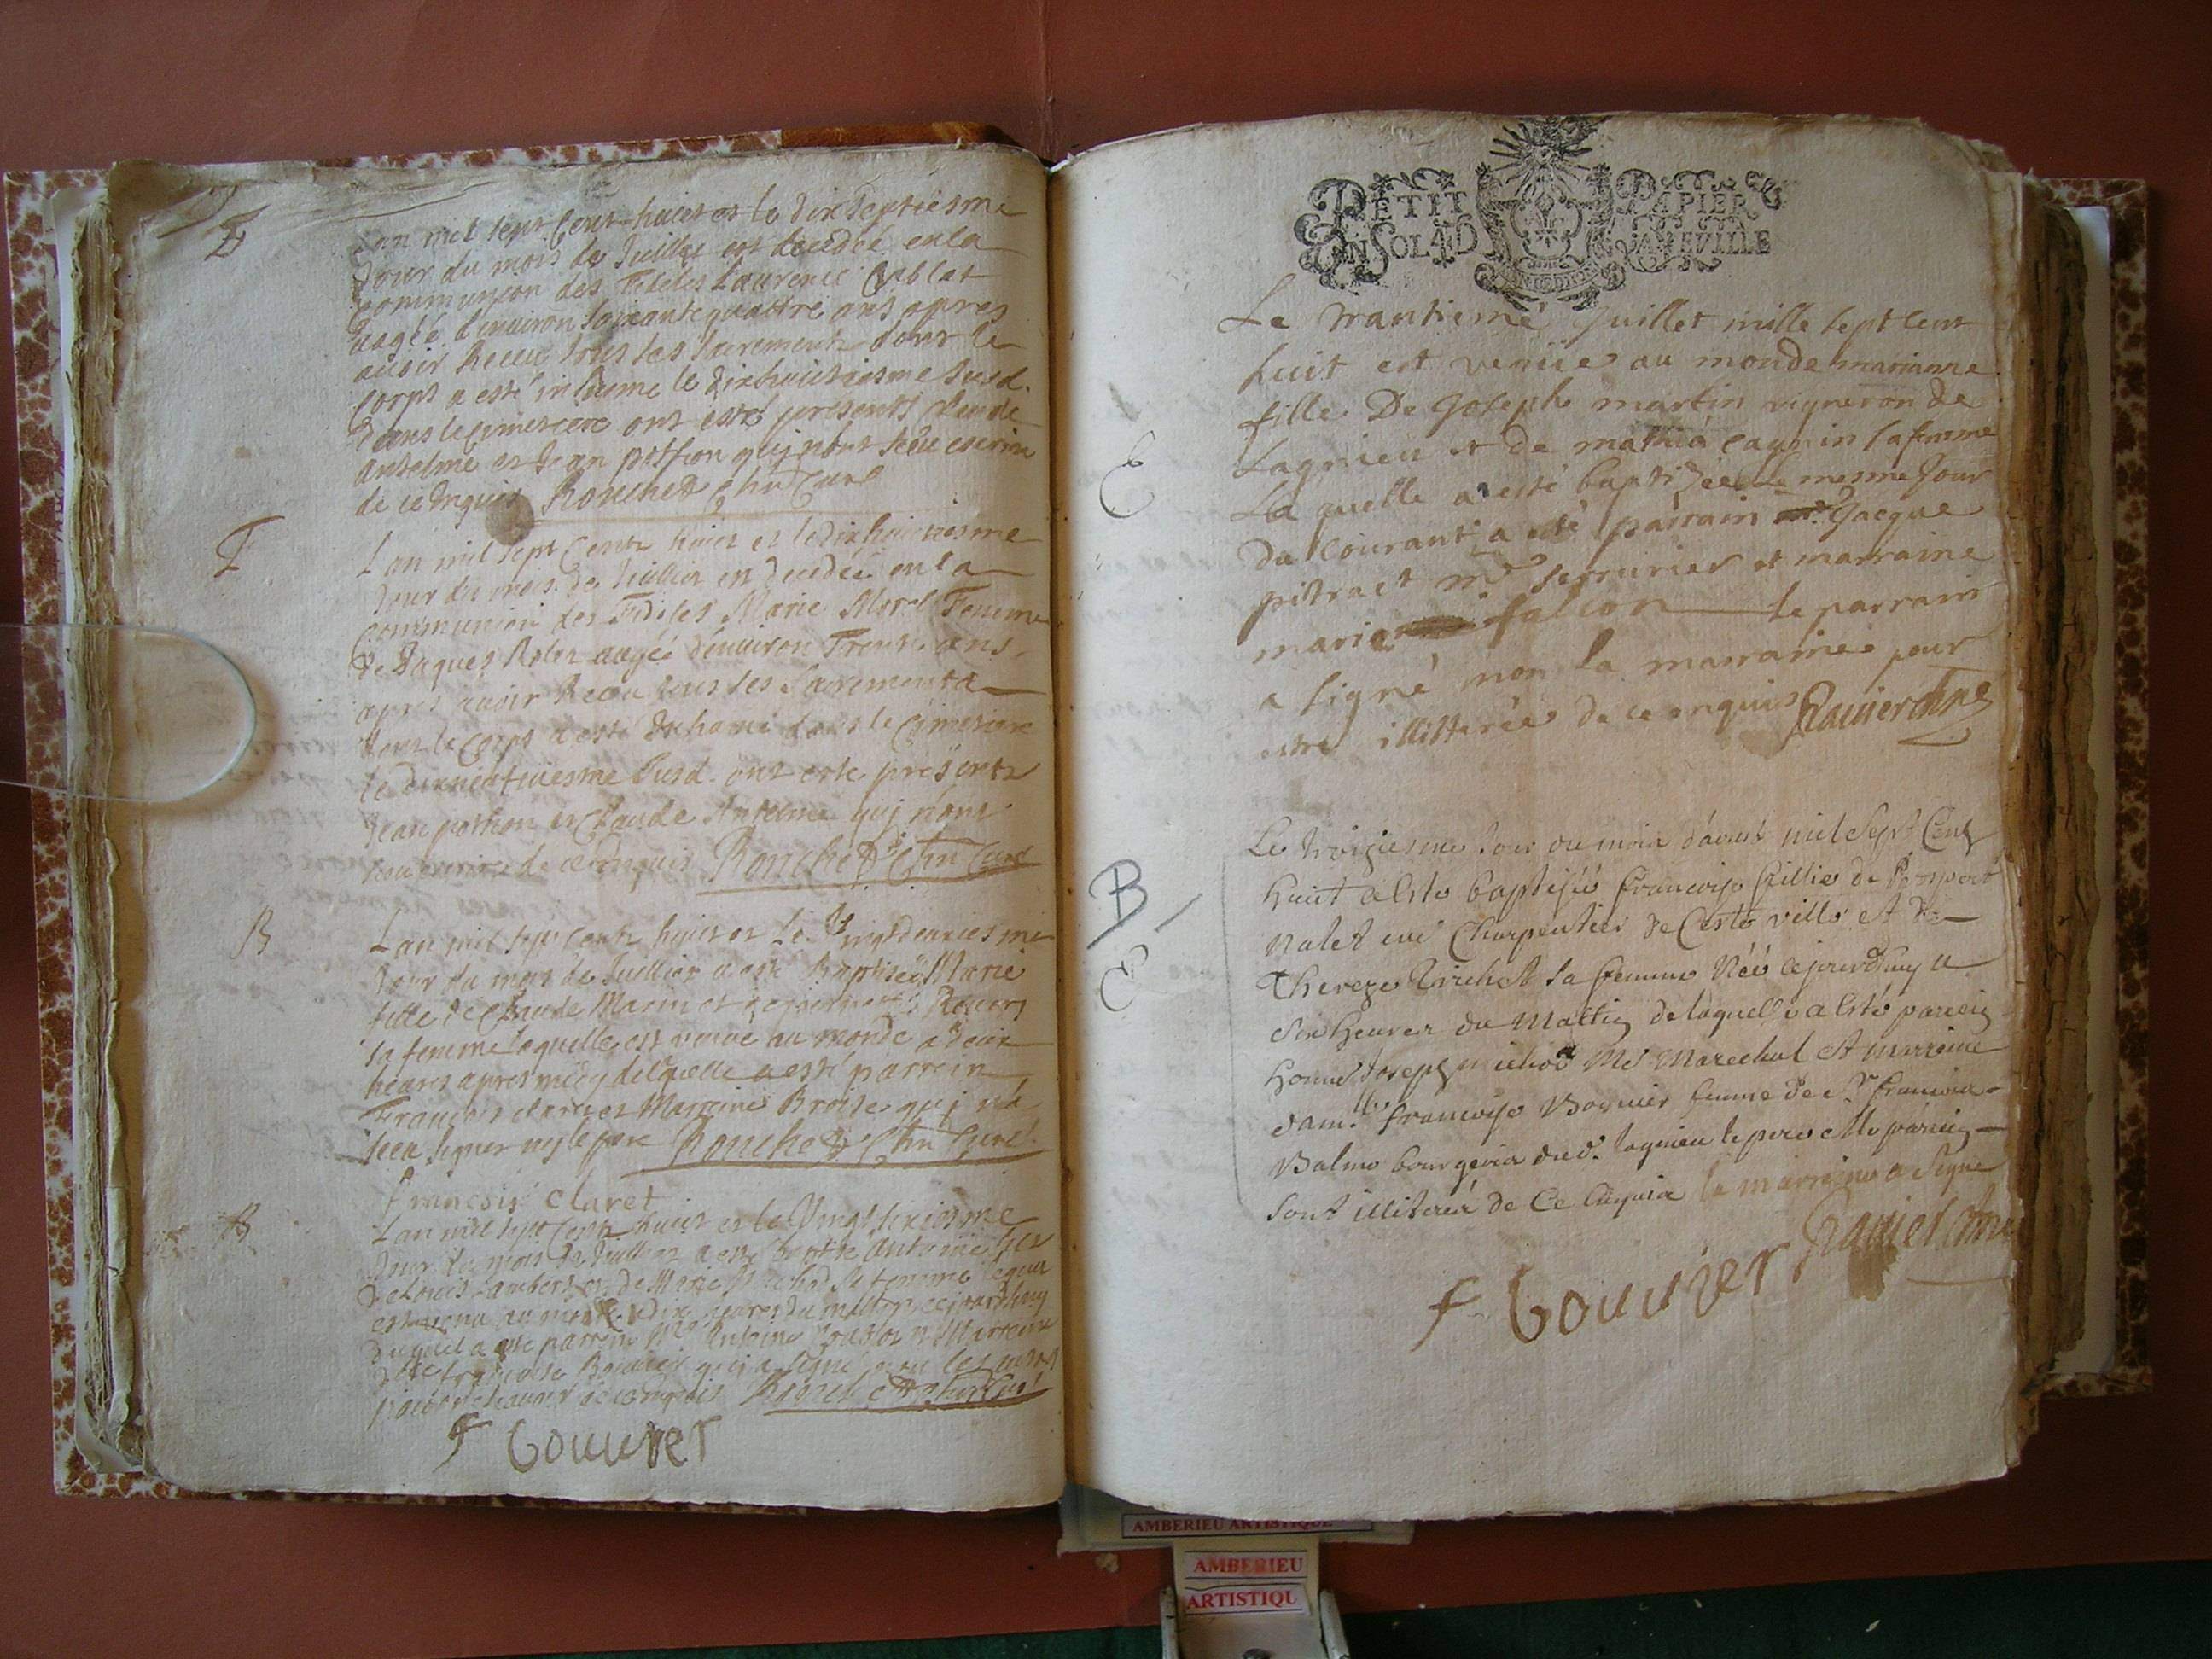 Lan mil sept Cent huict et le dix septiesme
Jour du mois de Juillet est decedée en la
communion des Fideles Laurence
aagée denuiron soixante quattre ans apres
auoir Receu tous les sacrements dont le
corps a esté inhumé le dixhuictiesme susd.
dans le cimetiere ont esté presents Claude
Antelme et Jean possion quj n'ont sceu escrire
de ce Enquis Ronchet Curé
Lan mil sept Cent huict et le dixhuictiesme
Jour du mois de Juillet est decedée en la
communion des Fideles Marie Morel Femme
de Jaques aagée denuiron Trente ans
apres auoir Receu tous les sacrements
dont le Corps a esté Inhumé dans le Cimetiere
le dixneufuiesme susd. ont esté presents
Jean possion et Claude Antelme quj n'ont
sceu escrire de ce Enquis Ronchet Curé
B
Lan mil sept Cent huict et le Vingtdeuxiesme
Jour du mois de Juillet a esté Baptisée Marie
fille de Claude Marin et de
sa femme laquelle est venue au monde a deux
heures apres midy de laquelle a esté parrein
François claret et Marreine Broise quj n'a
sceu signer ny le pere Ronchet Curé
François Claret
B
Lan mil sept Cent huict et le Vingt sixiesme
Jour du mois de Juillet a esté baptisé Antoine fils
de Louis Lambert et de Marie sa femme lequel
est venu au monde a Dix heures du matin ce jourdhuy
duquel a esté parrein Antoine et Marreine
françoise Bouuier quj a signé non les autres
de ce enquis Ronchet Curé
f bouuier
PETIT PAPIER
UN SOL 4 D LA FEUILLE
Le trantiemé Juillet mille sept cent
huit est venüe au monde marianne
fille De Joseph martin vigneron de
Lagnieu et de mathia cagnin sa femme
La quelle a esté baptizée le mesme Jour
Du Courant a esté parrain Jacque
pitract mre serrurier et marraine
marie falcon le parrain
a signé non la marraine pour
estre illitterée de ce enquis Rauier
B
Le troiziesme Jour du mois d'aoust mil sept Cent
huict a esté baptisée francoise fillie de
nalet Charpentier de Ceste ville et de
Thereze Trichet sa femme Née cejourdhuy a
Six heures du Mattin de laquelle a esté parein
honnet Joseph michod Me Marechal et marreine
dam.lle francoise Bouuier femme de Sr francois
Balme bourgeois dud. lagnieu le pere et le parein
sont illiteré de Ce Enquis la marreine a signé
f bouuier Rauier
AMBERIEU ARTISTIQUE
AMBERIEU
ARTISTIQU